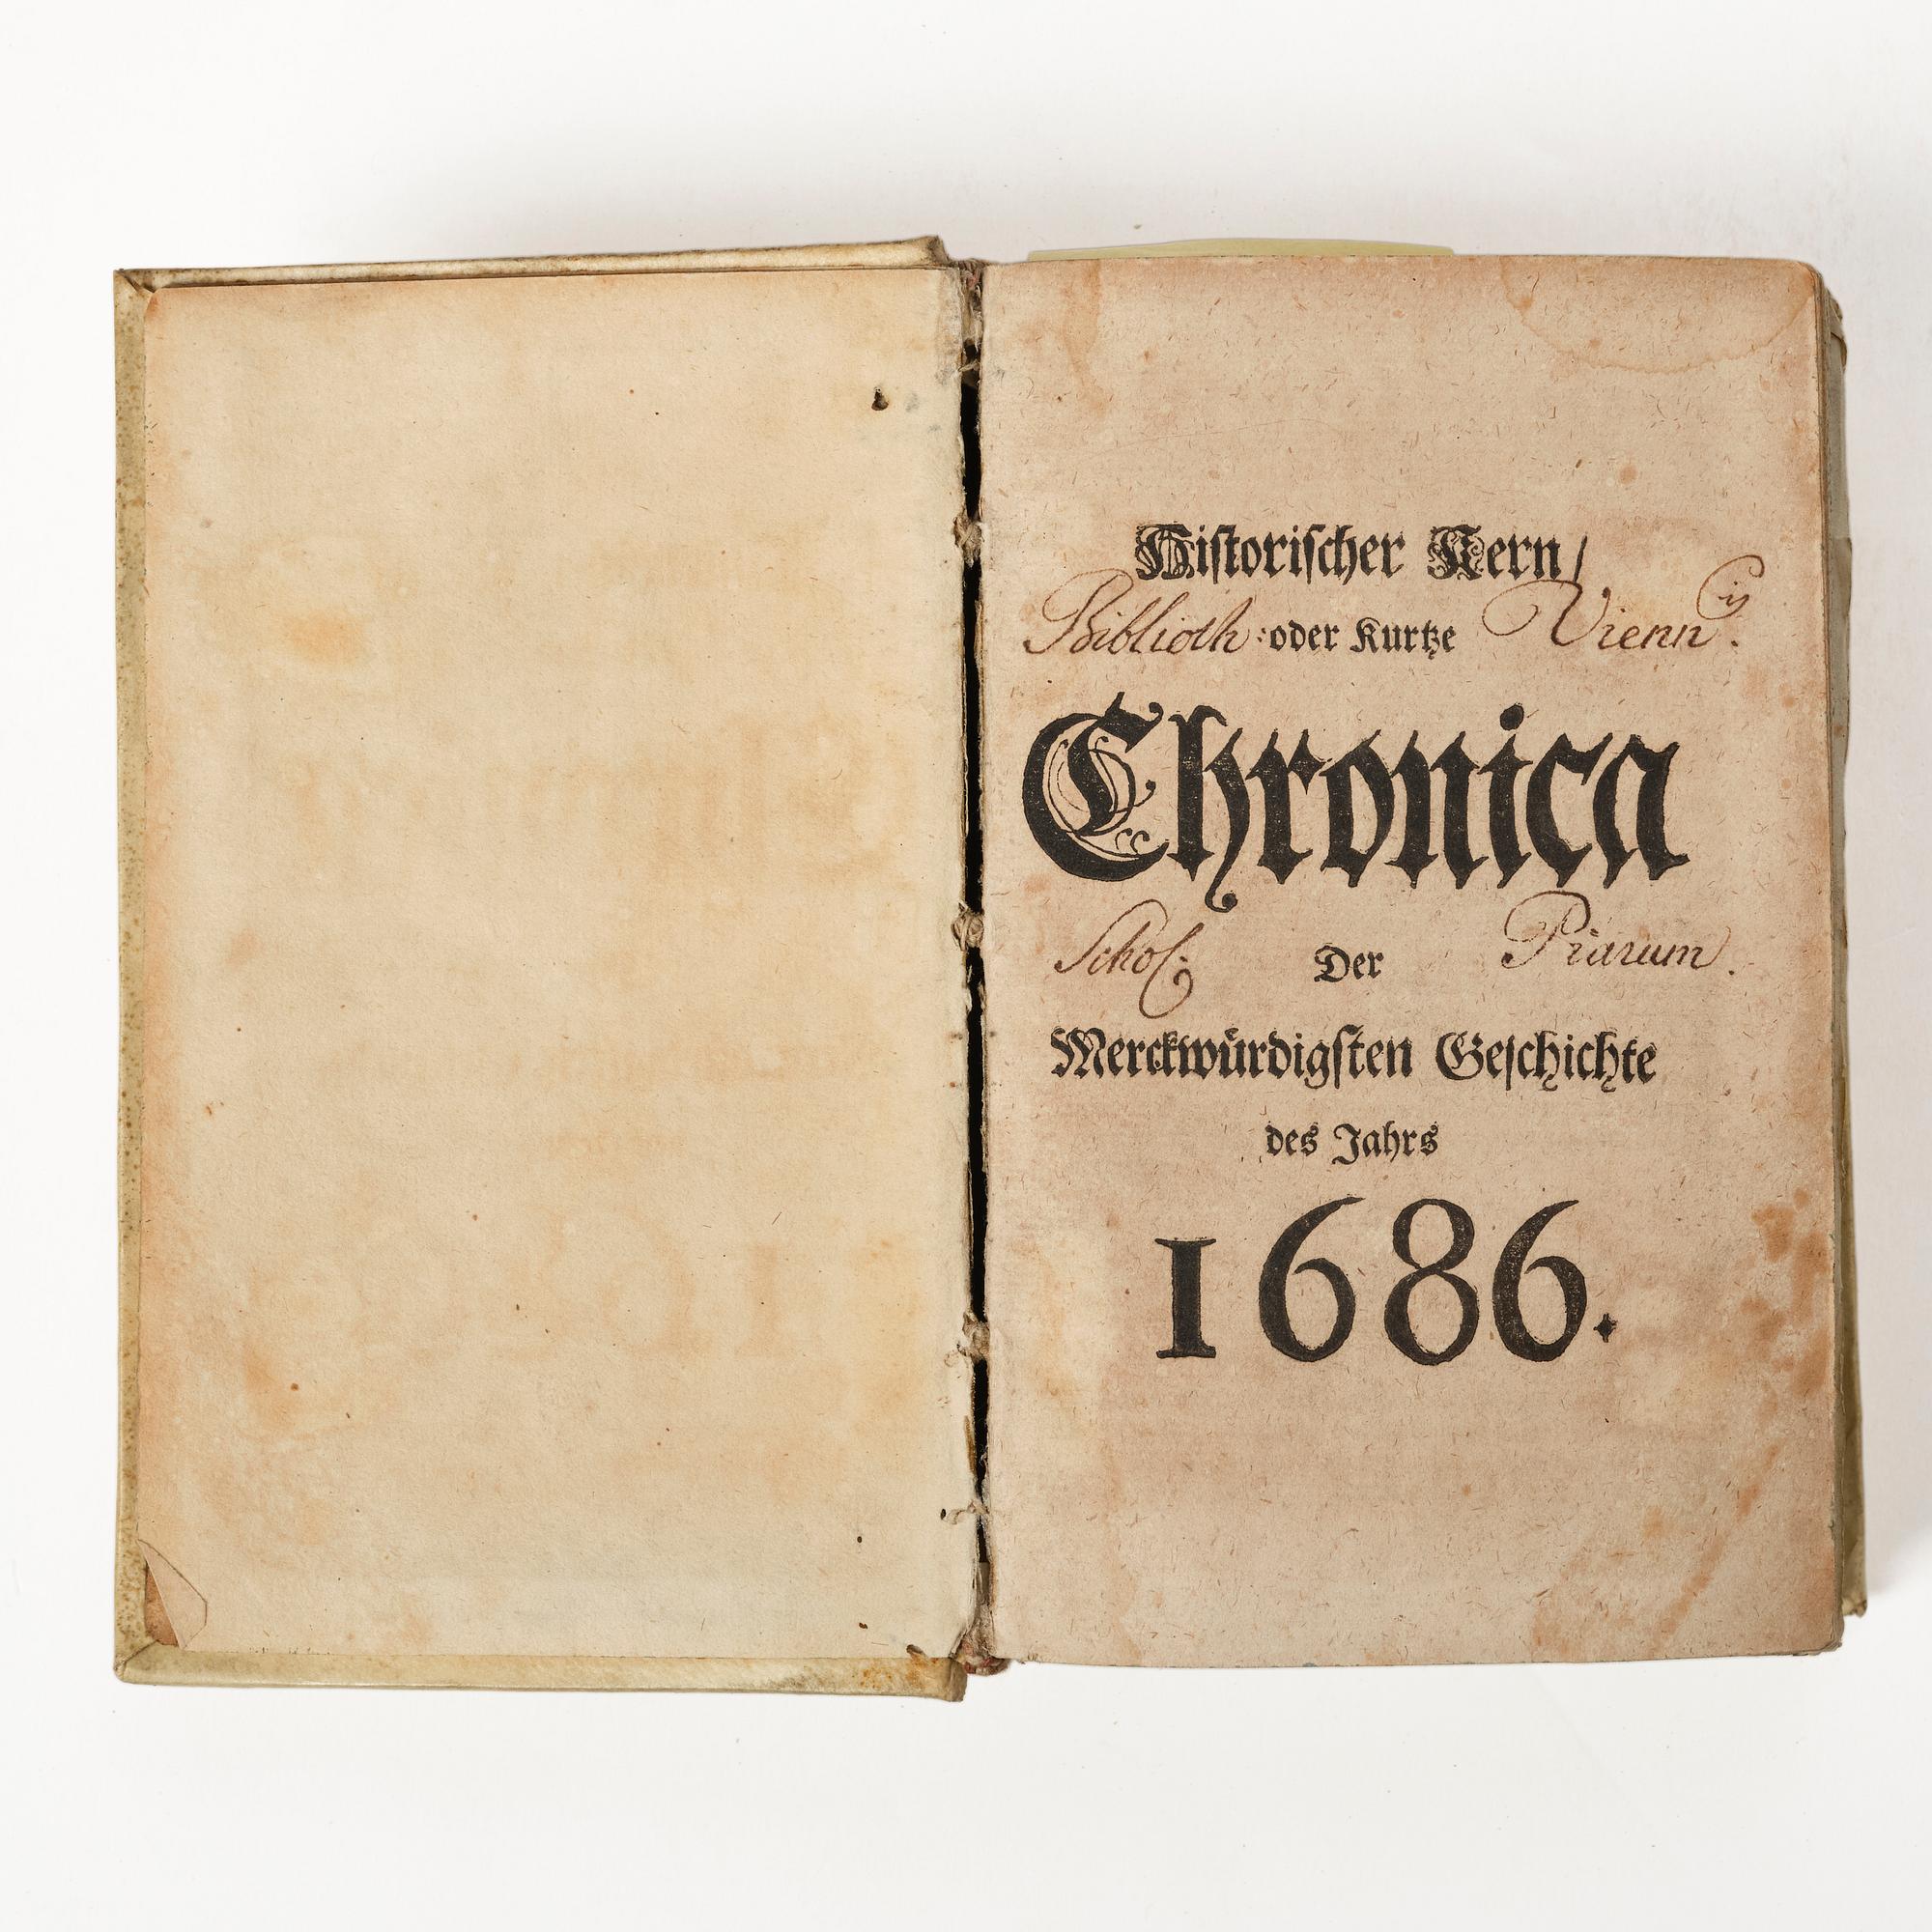 Historischer Kern/
Biblioth: oder Kurtze Vienn.
Chronica
Schol. Der Piarum.
Merckwürdigsten Geschichte
des Jahrs
1686.